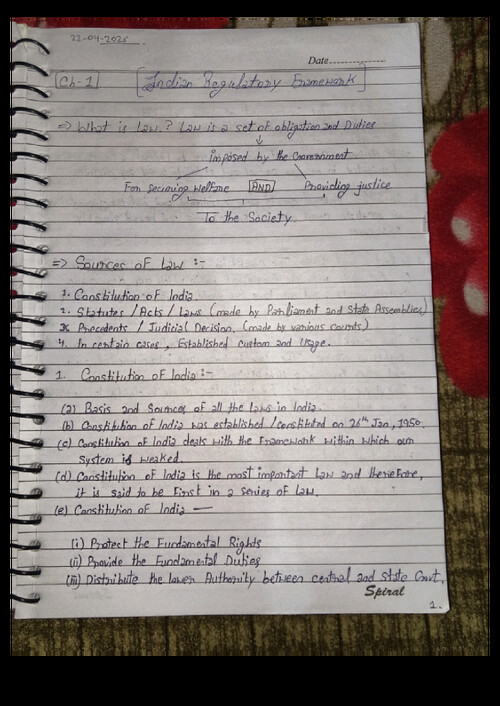 22-04-2025
Date
Ch-1 [Indian Regulatory Framework]
=> What is Law? Law is a set of obligation and Duties
imposed by the Government
For securing welfare AND Providing justice
To the Society.
=> Sources of Law :-
1. Constitution of India.
2. Statutes / Acts / Laws (made by Parliament and State Assemblies)
3. Precedents / Judicial Decision. (made by various courts)
4. In certain cases, Established custom and Usage.
1. Constitution of India :-
(a) Basis and Sources of all the laws in India.
(b) Constitution of India was established / constituted on 26th Jan, 1950.
(c) Constitution of India deals with the Framework within which our
system is weaked.
(d) Constitution of India is the most important Law and therefore,
it is said to be First in a series of Law.
(e) Constitution of India —
(i) Protect the Fundamental Rights
(ii) Provide the Fundamental Duties
(iii) Distribute the lower Authority between central and State Govt.
Spiral
1.